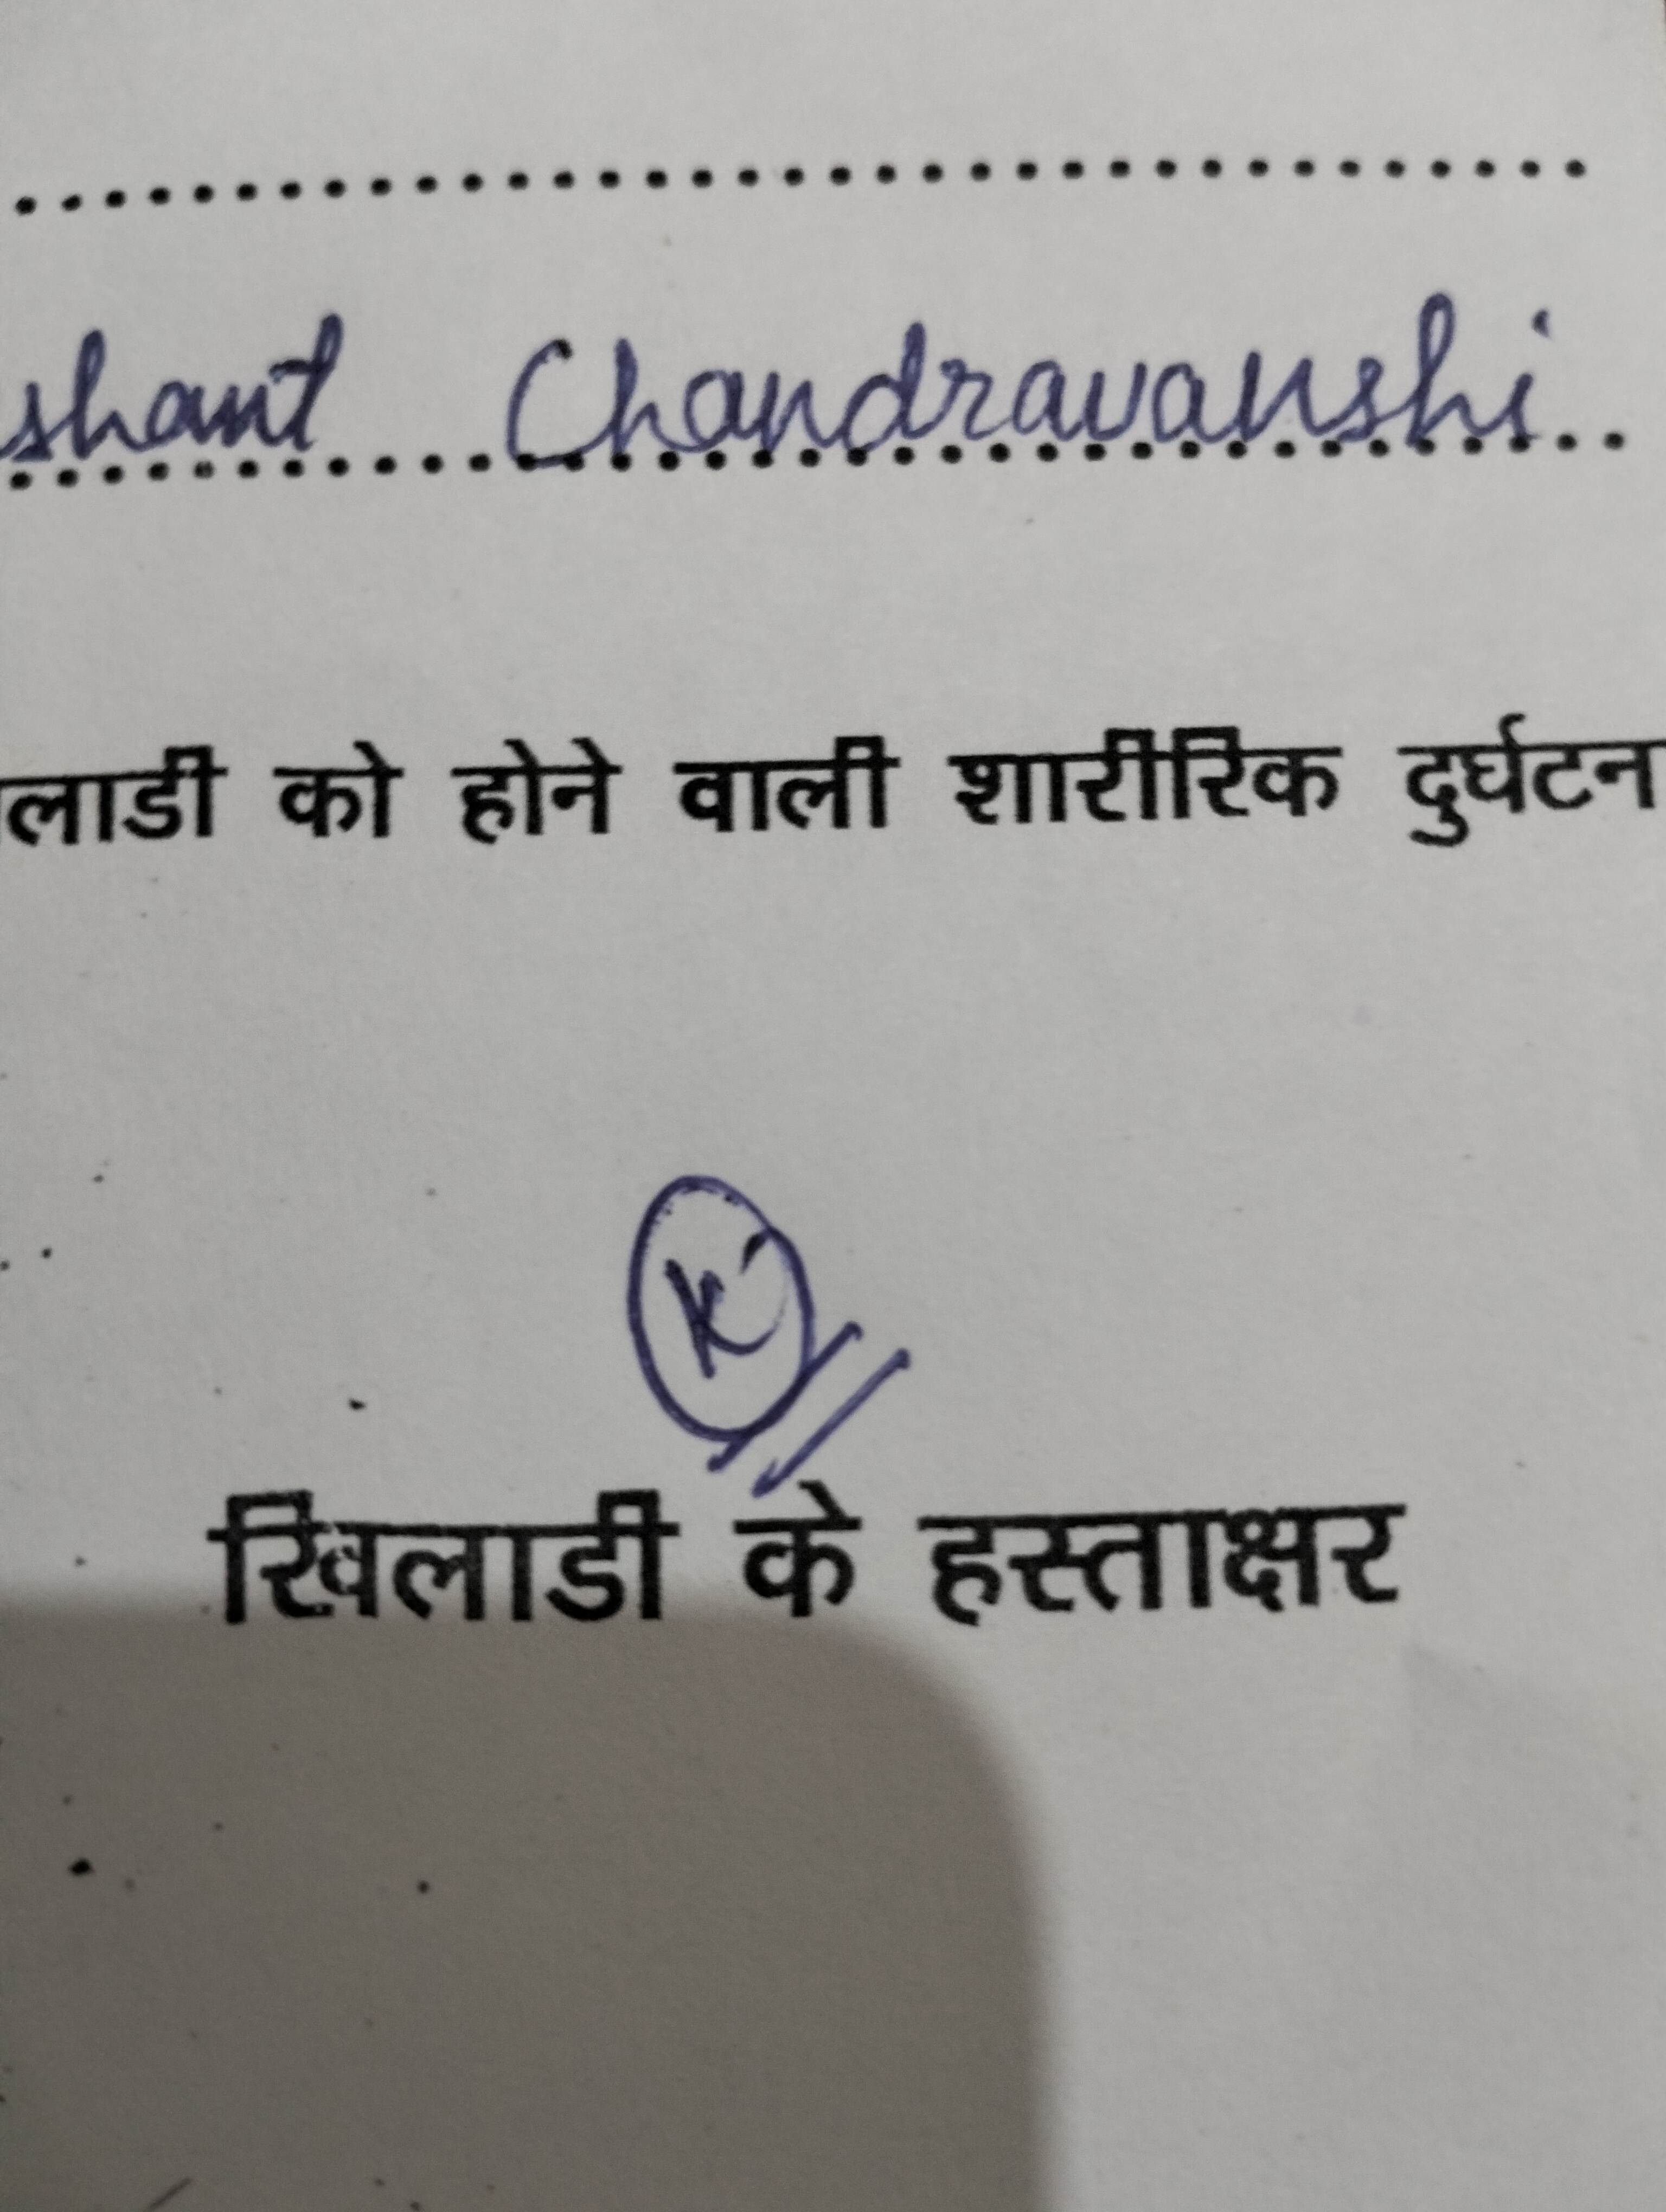 shant Chandravanshi
लाडी को होने वाली शारीरिक दुर्घटन
K
खिलाडी के हस्ताक्षर